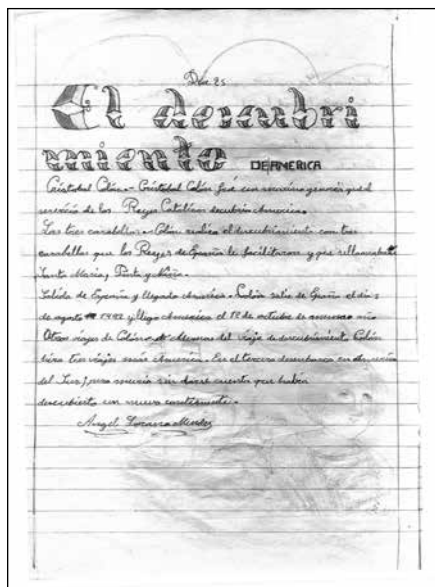 Día 25
El descubri
miento DE AMERICA
Cristobal Colón.- Cristobal Colón fué un marino genovés que al
servicio de los Reyes Católicos descubrio America.
Las tres carabelas.- Colón realizo el descubrimiento con tres
carabelas que los Reyes de España le facilitaron y que se llamaban
Santa Maria, Pinta y Niña.
Salida de España y llegada America.- Colón salio de España el dia 3
de agosto 1492 y llego America el 12 de octubre de mismo año
Otros viajes de Colón.- Ademas del viaje de descubrimiento Colón
hizo tres viajes más America. En el tercero desembarco en America
del Sur, pero murio sin darse cuenta que habia
descubierto un nuevo continente.
Angel Mendez